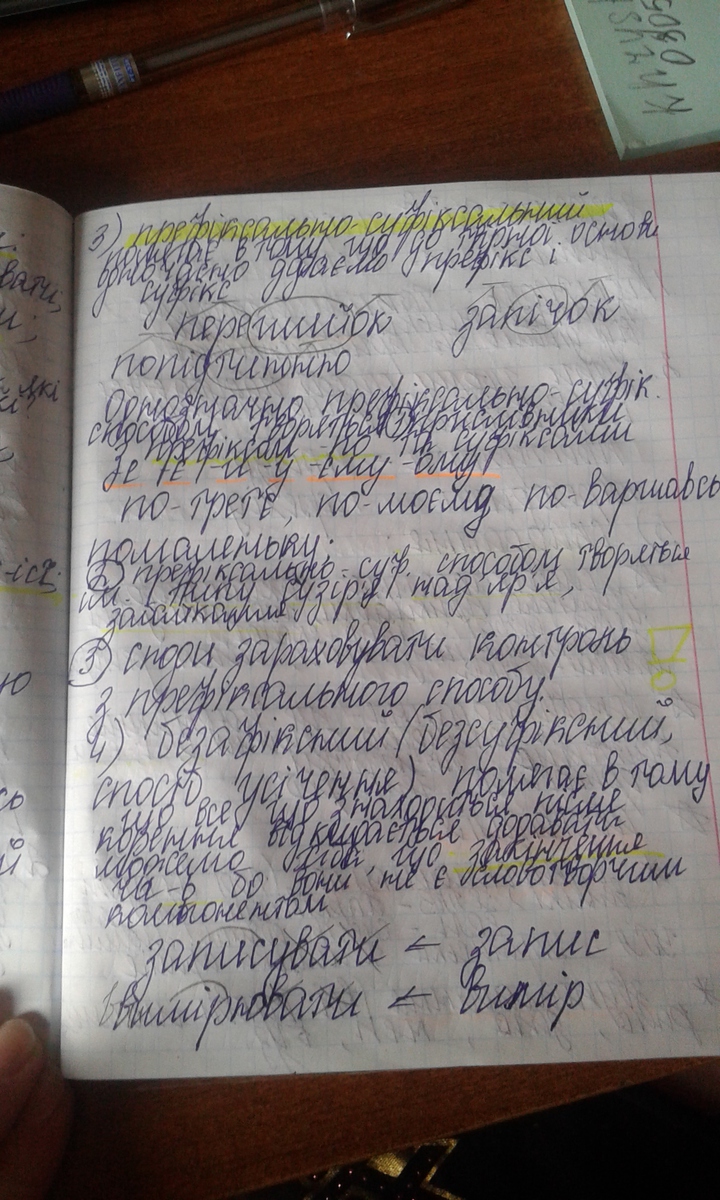 3) префіксально-суфіксальний
полягає в тому що до твірної основи
одночасно додаємо префікс і
суфікс
перешийок запічок
попідтинню
Однозначно префіксально-суфік.
способом творяться прислівники
з префіксом по- та суфіксами
-е -є -и -у -єму -ому
по-третє, по-моєму по-варшавськ
помаленьку.
2) префіксально-суф. способом творяться
ім. типу сузір'я надгір'я,
забайкалля
3 сюди зараховувати контрань
з префіксального способу.
4) безафіксний (безсуфіксний,
спосіб усічення) полягає в тому
що все що знаходиться після
кореня відкидається додавати
можемо лише закінчення
бо вони не є словотворчим
компонентом
записувати ← запис
вимірювати ← вимір